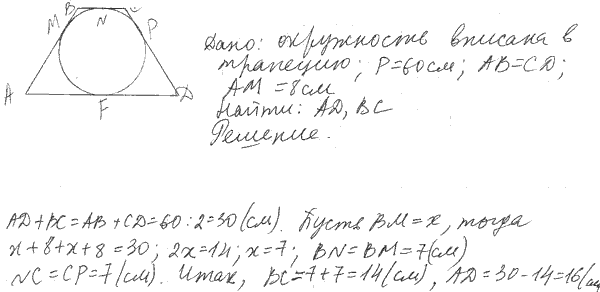 B
M
N
C
P
A
F
D
Дано: окружность вписана в
трапецию; P=60см; AB=CD;
AM=8см
Найти: AD, BC
Решение.
AD+BC=AB+CD=60:2=30(см). Пусть BM=x, тогда
x+8+x+8=30; 2x=14; x=7; BN=BM=7(см)
NC=CP=7(см). Итак, BC=7+7=14(см), AD=30-14=16(см